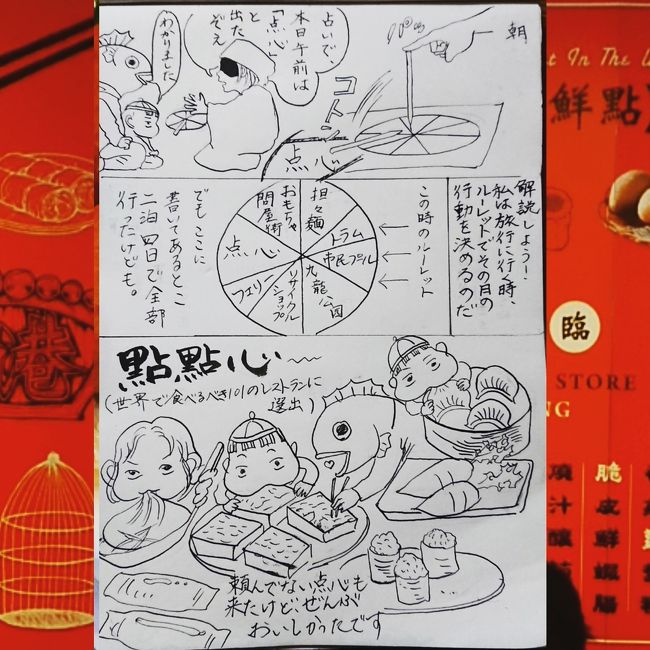 朝
コトン
点心
占いで、
本日午前は
「点心」
と
出た
ぞえ
わかりました
解説しよう!、
私は旅行に行く時、
ルーレットでその日の
行動を決めるのだ
この時のルーレット
担々麺
トラム
市民プール
九龍公園
リサイクル
ショップ
フェリー
点心
おもちゃ
問屋街
でもここに
書いてあるとこ
二泊四日で全部
行ったけども。
點點心〜
(世界で食べるべき101のレストランに
選出)
頼んでない点心も
来たけどぜんぶ
おいしかったです
港
In The
鮮點
臨
STORE
NG
脆皮鮮蝦腸
汁釀